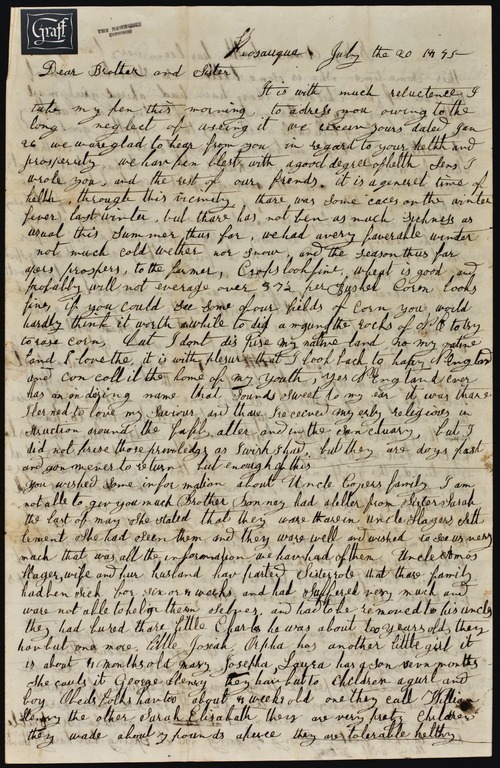 Graff
THE NEWBERRY
Keosauqua July the 20 1845
Dear Brother and Sister
It is with much reluctence I
take my pen this morning to adress you owing to the
long neglect of useing it we received yours dated Jan
26 we ware glad to hear from you in regard to your helth and
prosperity we have ben blest with a good degree of helth sens I
wrote you, and the rest of our friends. it is a generel time of
helth through this vicinity thare was some caces on the winter
fever last winter, but thare has not ben as much sickness as
usual this Summer thus far, we had a very faverable winter
not much cold wether nor snow, and the season thus far
apers prospers, to the farmer, Crops look fine, wheat is good and
probably will not everage over 37½ per bushel Corn looks
fine, if you could see some of our fields of Corn you would
hardly think it worth a while to dig amung the rocks of N E to try
to rase corn, but I dont dispise my native land no my native
land I love the, it is with plesure that I look back to hapy N England
and can coll it the home of my youth, yes N England ever
has an endering name that sounds sweet to my ear it was thare
I lerned to love my Saviour and thare I received my erly religious in
struction around the famil alter and in the senctuary, but I
did not prise those privledges as I wish I had. but they are days past
and gon never to return but enough of this
you wished some information about Uncle Copers family I am
not able to giv you much Brother Sonney had a letter from Sister Sarah
the last of may she stated that they ware thare in uncle Hagers Sett
lement she had seen them and they ware well and wished to see us very
mach that was all the information we hav had of them Uncle Amos
Hager, wife and her husband hav parted Sister rote that thare family
had ben sick for six or 4 weeks, and had suffered very much and
ware not able to help them selves, and had to be removed to his uncles
they had bured thare little Charls he was about two years old, they
hav but one more, little Josiah, Orpha has another little girl it
is about 4 months old mary Josepha, Laura has a son seven months
she caels it George Henry they hav but to Children a gurl and
boy Obeds folks hav two about 4 weeks old one they call William
Henry the other Sarah Elisabath they are very prety Children
they wade about 7 pounds apiece they are tolerable helthy